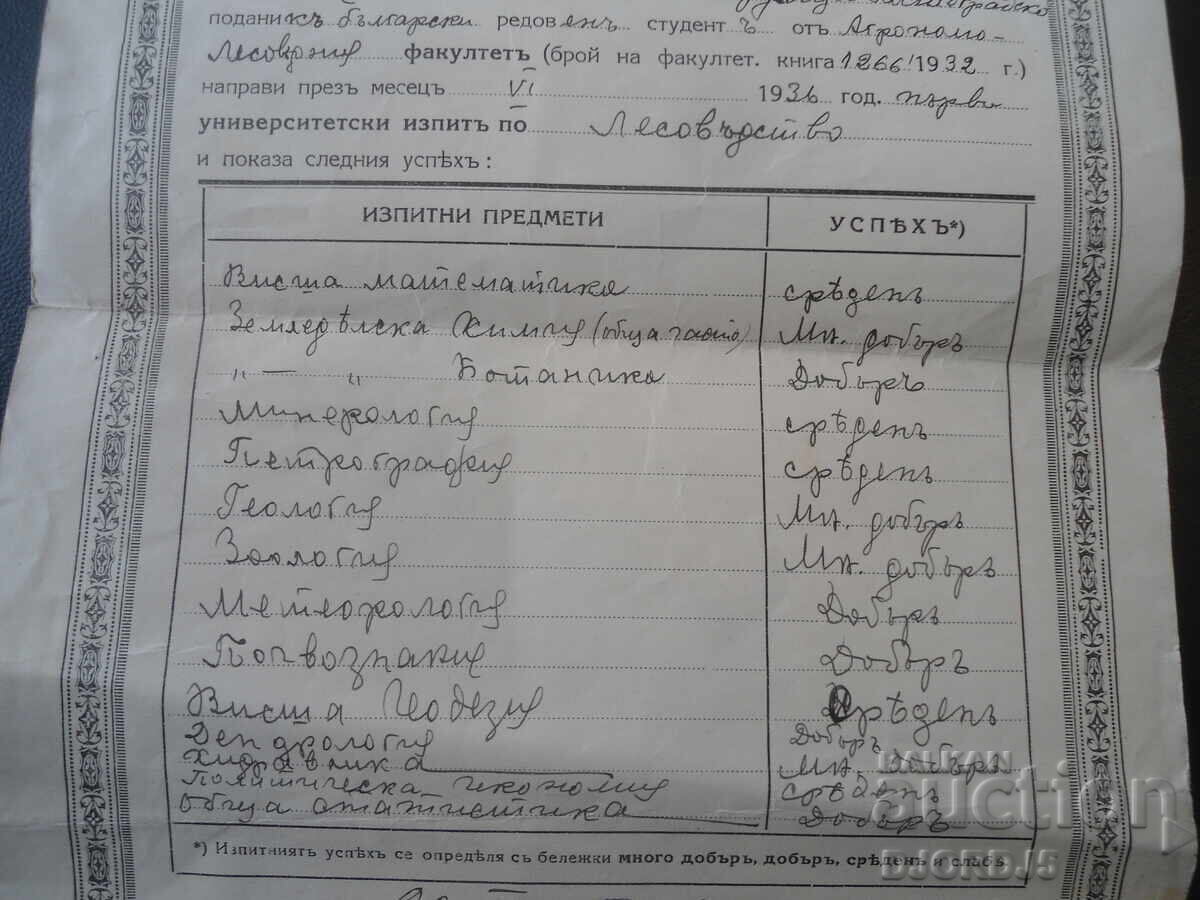 поданикъ български редовенъ студентъ отъ Агрономо-
Лесовъдния факултетъ (брой на факултет. книга 1266/1932 г.)
направи презъ месецъ VI 1936 год. първи
университетски изпитъ по Лесовъдство
и показа следния успѣхъ:
ИЗПИТНИ ПРЕДМЕТИ УСПѢХЪ*)
Висша математика срѣденъ
Земледѣлска Химия (обща часть) Мн. добъръ
„ — „ Ботаника Добъръ
Минерология срѣденъ
Петрография срѣденъ
Геология Мн. добъръ
Зоология Мн. добъръ
Метеорология Добъръ
Почвознание Добъръ
Висша Геодезия Срѣденъ
Дендрология Добъръ
Хидравлика Мн. добъръ
Политическа икономия срѣденъ
Обща статистика Добъръ
*) Изпитниятъ успѣхъ се опредѣля съ бележки много добъръ, добъръ, срѣденъ и слабъ
BALKAN
auction
DJORDJ5